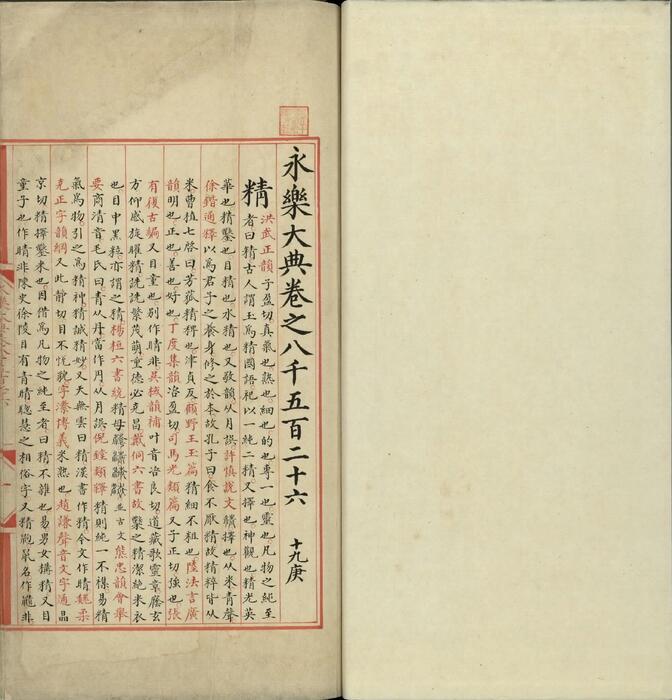 永樂大典卷之八千五百二十六 十九庚
精 洪武正韻子盈切真氣也熟也細也的也專一也靈也凡物之純至
者曰精古人謂玉爲精國語祀以一純二精又擇也神觀也精光英
華也精鑿也目精也水精也又敬韻从月誤許慎說文擇也从米青聲
徐鍇通釋以爲君子之養身修之於本故孔子曰食不厭精故精粹皆从
米曹植七啓曰芳菰精稗也津貞反顧野王玉篇精細不粗也陸法言廣
韻明也正也善也好也丁度集韻咨盈切司馬光類篇又子正切強也張
有復古編又目童也別作睛非吳棫韻補叶音咨良切道藏歌靈章麾玄
方仰感旋曜精洗洗繁茂萌重德必克昌戴侗六書故鑿之精潔純米衣
也目中黑粒亦謂之精楊桓六書統精母並古文熊忠韻會舉
要商清音毛氏曰青从丹當作円从月誤倪鏜類釋精則純一不糅易精
氣爲物引之爲精神精誠精妙又天無雲曰精漢書作精今文作晴魏柔
克正字韻綱又此靜切目不悅貌字潫博義米熟也趙謙聲音文字通晶
京切精擇鑿米也因借爲凡物之純至者曰精不雜也易男女搆精又目
童子也作睛非陳史徐陵目有青睛聰慧之相俗字又精鼩鼠名作鼱非